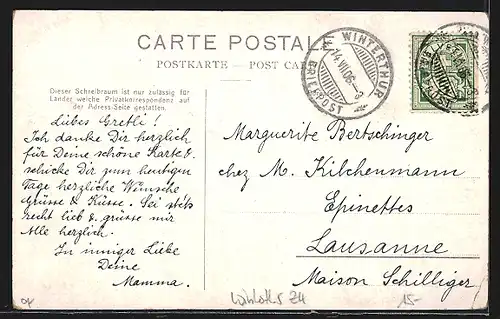 CARTE POSTALE
POSTKARTE — POST CARD
Dieser Schreibraum ist nur zulässig für
Länder welche Privatkorrespondenz auf
der Adress-Seite gestatten.
WINTERTHUR
14.VII.06.-8
BRIEFPOST
Liebes Gretli!
Ich danke Dir herzlich
für Deine schöne Karte &
schicke Dir zum heutigen
Tage herzliche Wünsche
Grüsse & Küsse. Sei stets
recht lieb & grüsse mir
Alle herzlich.
In inniger Liebe
Deine
Mamma.
Marguerite Bertschinger
chez M. Kilchenmann
Epinettes
Lausanne
Maison Schilliger
24
15-